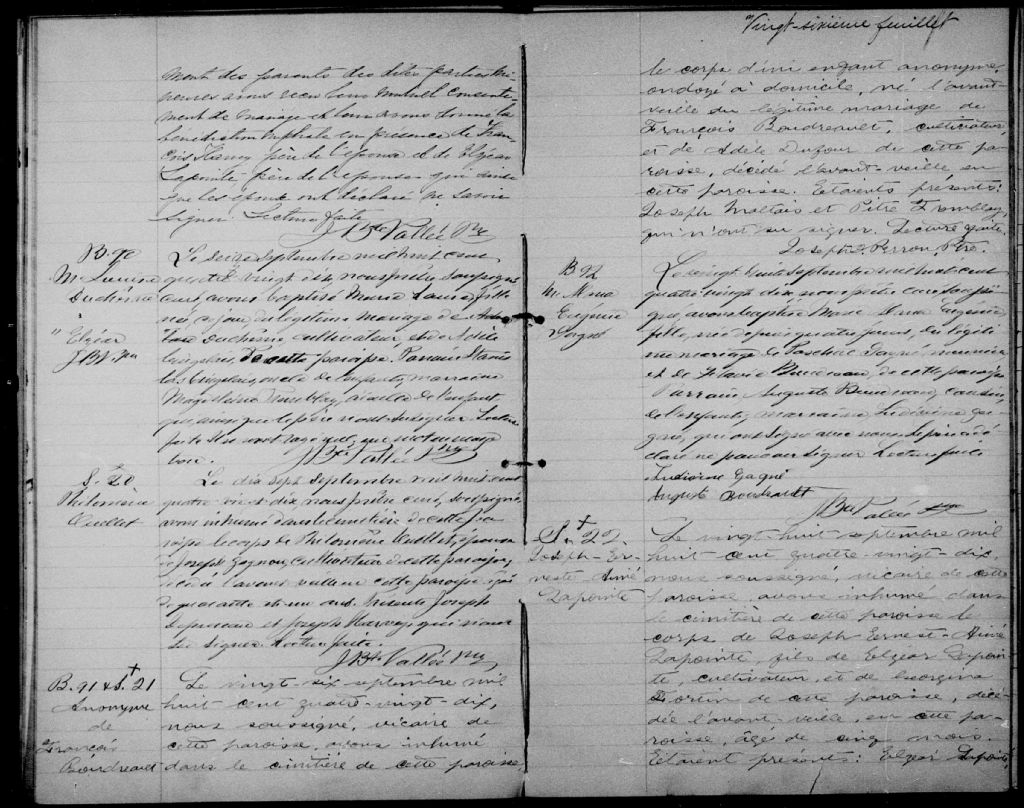 ment des parents des dites parties mi-
neures avons reçu leur mutuel consente-
ment de mariage et leur avons donné la
bénédiction nuptiale en présence de Fran-
çois père de l'épouse et de Elzéar
Lapointe, père de l'épouse qui ainsi
que les époux ont déclaré ne savoir
signer. Lecture faite
J Bte Vallée Ptre
B. 90
M. Louise
Duchesne
" Elzéar
J.B.V. Ptre
Le seize Septembre mil huit cent
quatre vingt dix, nous prêtre soussigné
curé avons baptisé Marie Laura, fille
née ce jour, du légitime mariage de
Duchesne cultivateur, et de Adèle
de cette paroisse. Parrain
oncle de l'enfant, marraine
Magdeleine Tremblay, aïeule de l'enfant
qui ainsi que le père n'ont su signer. Lecture
faite
bon.
J Bte Vallée Ptre
S. 20
Philomène
Ouellet
Le dix sept Septembre mil huit cent
quatre vingt dix nous prêtre curé, soussigné,
avons inhumé dans le cimetière de cette pa-
roisse le corps de Philomène Ouellet, épouse
de Joseph Gagnon, cultivateur de cette paroisse,
décédé l'avant veille en cette paroisse âgée
de quarante et un ans. Présents Joseph
et Joseph Harvey, qui n'ont
su signer. Lecture faite.
J Bte Vallée Ptre
B. 91 & S. 21
Anonyme
de
François
Boudreault
Le vingt-six septembre mil
huit cent quatre-vingt-dix,
nous soussigné, vicaire de
cette paroisse, avons inhumé
dans le cimitière de cette paroisse
Vingt-sixième feuillet
le corps d'un enfant anonyme,
ondoyé à domicile, né l'avant-
veille du légitime mariage de
François Boudreault, cultivateur
et de Adèle Dufour de cette pa-
roisse, décédé l'avant-veille en
cette paroisse. Etaients présents:
Joseph Maltais et Pitre Tremblay,
qui n'ont su signer. Lecture faite.
Joseph Perron, Ptre.
B 92
M. Alma
Eugénie
Gagné
Le vingt huit Septembre mil huit cent
quatre vingt dix, nous prêtre curé soussi-
gné, avons baptisé Marie Alma Eugénie
fille, née depuis quatre jours, du légiti-
me mariage de Paschal Gagné, meunier
et de Flavie Boudreault, de cette paroisse
Parrain, Auguste Boudreault, cousin
de l'enfant, marraine, Ludivine Ga-
gné, qui ont signé avec nous, le père a dé-
claré ne pas savoir signer. Lecture faite
Ludivine Gagné
Auguste Boudreault
J Bte Vallée Ptre
S. 22.
Joseph-Er-
neste-Aimé
Lapointe
Le vingt-huit septembre mil
huit cent quatre-vingt-dix.
nous soussigné, vicaire de cette
paroisse, avons inhumé dans
le cimitière de cette paroisse le
corps de Joseph Ernest-Aimé
Lapointe, fils de Elzéar Lapoin-
te, cultivateur, et de Georgina
Fortin de cette paroisse, décé-
dée l'avant-veille, en cette pa-
roisse, âgé de cinq mois.
Etaient présents: Elzéar Lapointe,